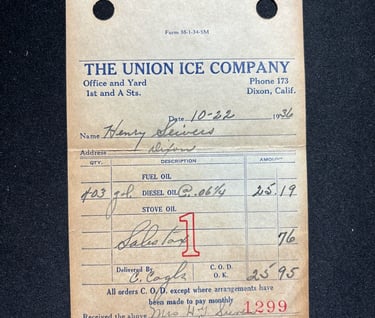 Form 58-1-34-5M
THE UNION ICE COMPANY
Office and Yard Phone 173
1st and A Sts. Dixon, Calif.
Date 10-22 1936
Name Henry Seivers
Address Dixon
QTY. DESCRIPTION AMOUNT
FUEL OIL
403 gal. DIESEL OIL @ .06¼ 25.19
STOVE OIL
1
Sales tax 76
Delivered By C. O. D.
C. O. K. 25 95
All orders C. O. D. except where arrangements have
been made to pay monthly
Received the above Mrs 1299